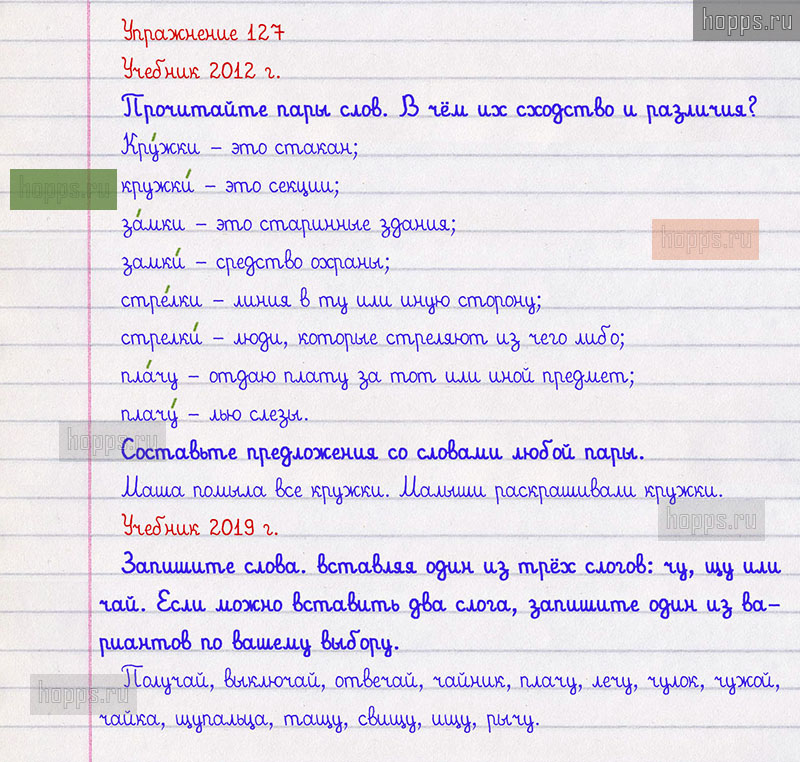 hopps.ru
Упражнение 127
Учебник 2012 г.
Прочитайте пары слов. В чём их сходство и различия?
Кру́жки – это стакан;
hopps.ru
кружки́ – это секции;
за́мки – это старинные здания;
hopps.ru
замки́ – средство охраны;
стре́лки – линия в ту или иную сторону;
стрелки́ – люди, которые стреляют из чего либо;
пла́чу – отдаю плату за тот или иной предмет;
плачу́ – лью слезы.
hopps.ru
Составьте предложения со словами любой пары.
Маша помыла все кружки. Малыши раскрашивали кружки.
hopps.ru
Учебник 2019 г.
Запишите слова. вставляя один из трёх слогов: чу, щу или
чай. Если можно вставить два слога, запишите один из ва–
риантов по вашему выбору.
Получай, выключай, отвечай, чайник, плачу, лечу, чулок, чужой,
hopps.ru
чайка, щупальца, тащу, свищу, ищу, рычу.